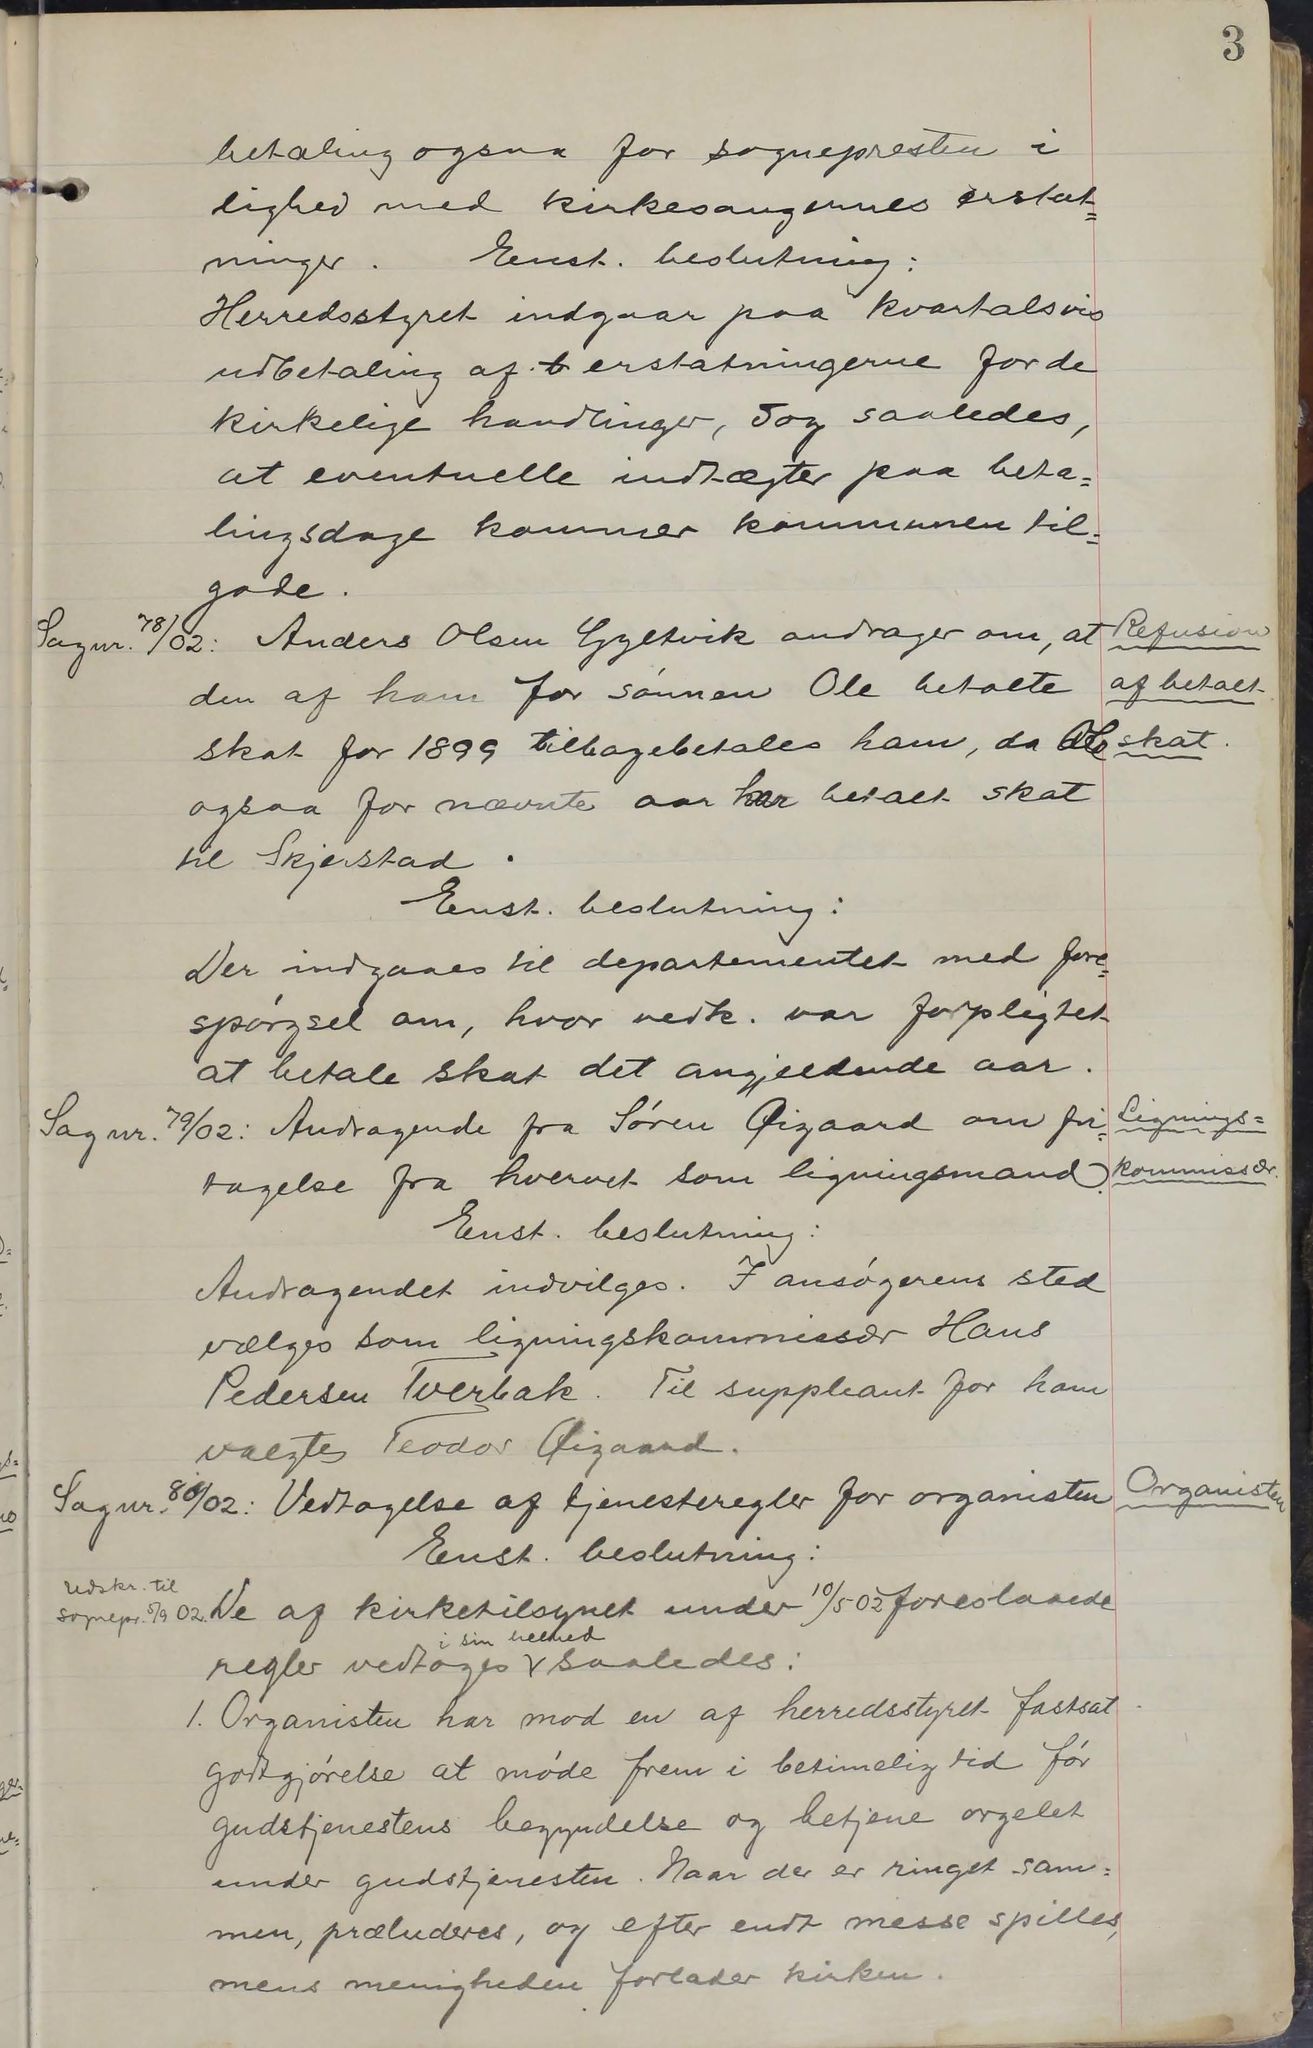 3
betaling ogsaa for sognepresten i
lighed med kirkesangernes erstat=
ninger. Enst. beslutning:
Herredsstyret indgaar paa kvartalsvis
udbetaling af erstatningerne for de
kirkelige handlinger, dog saaledes,
at eventuelle indtægter paa beta=
lingsdage kommer kommunen til=
gode.
Sag nr. 78/02: Anders Olsen Gyltvik andrager om, at Refusion
den af ham for sønnen Ole betalte af betalt
skat for 1899 tilbagebetales ham, da Ole skat.
ogsaa for nævnte aar har betalt skat
til Skjerstad.
Enst. beslutning:
Der indgaaes til departementet med fore=
spørgsel om, hvor vedk. var forpligtet
at betale skat det angjeldende aar.
Sag nr. 79/02: Andragende fra Søren Øigaard om fri- Lignings=
tagelse fra hvervet som ligningsmand. kommissær.
Enst. beslutning:
Andragendet indvilges. I ansøgerens sted
vælges som ligningskommissær Hans
Pedersen Tverbak. Til suppleant for ham
valgtes Teodor Øigaard.
Sag nr. 80/02: Vedtagelse af tjenesteregler for organisten Organisten
Enst. beslutning:
Udskr. til
sognepr. 5/9 02. De af kirketilsynet under 10/5 02 foreslaaede
i sin helhed
regler vedtoges saaledes:
1. Organisten har mod en af herredsstyret fastsat
godtgjørelse at møde frem i betimelig tid før
gudstjenestens begyndelse og betjene orgelet
under gudstjenesten. Naar der er ringet sam=
men, præluderes, og efter endt messe spilles,
mens menigheden forlader kirken.